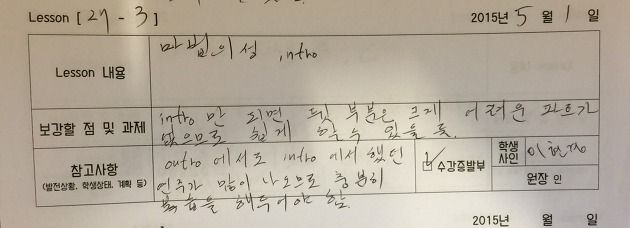 Lesson [ 27 - 3 ] 2015년 5 월 1 일
Lesson 내용
마법의 성 intro
보강할 점 및 과제
intro 만 되면 뒷 부분은 크게 어려운 파트가
없으므로 쉽게 할 수 있을 듯.
참고사항
(발전상황, 학생상태, 계획 등)
outro 에서도 intro 에서 했던
연주가 많이 나오므로 충분히
복습을 해두어야 함.
수강증발부
학생
사인
원장 인
2015년 월 일